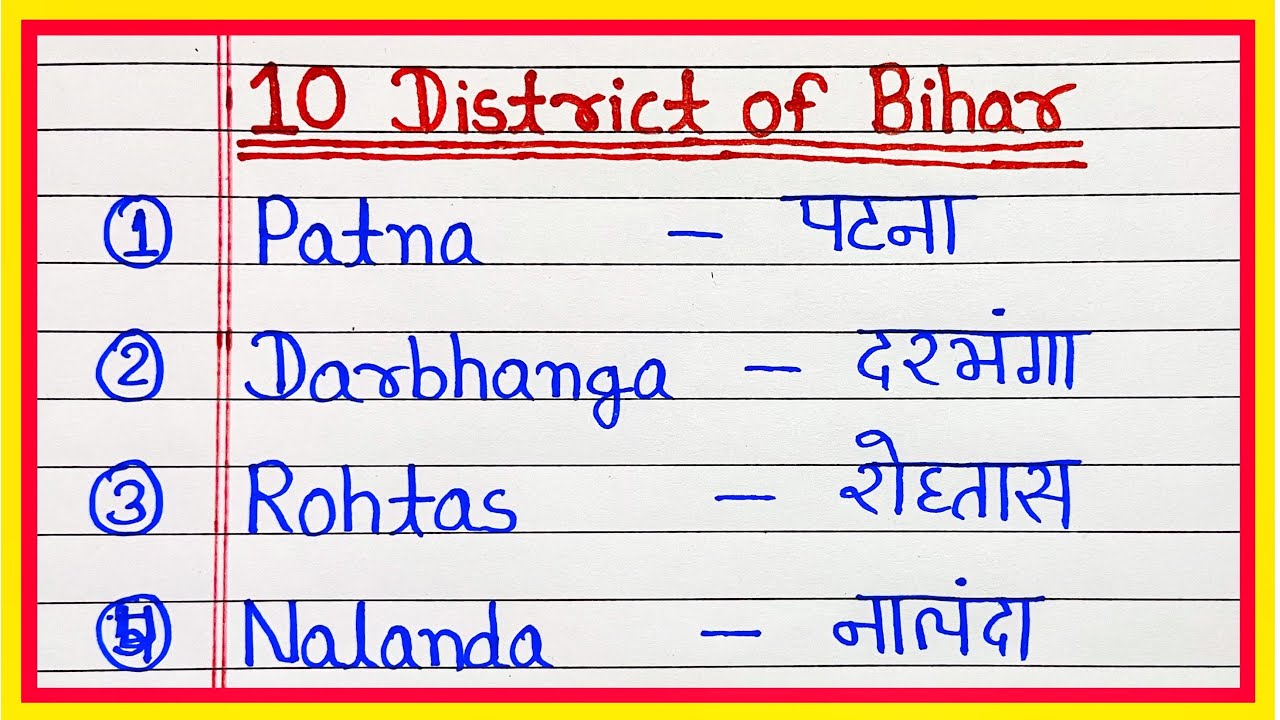 10 District of Bihar
1 Patna - पटना
2 Darbhanga - दरभंगा
3 Rohtas - रोहतास
Nalanda - नालंदा